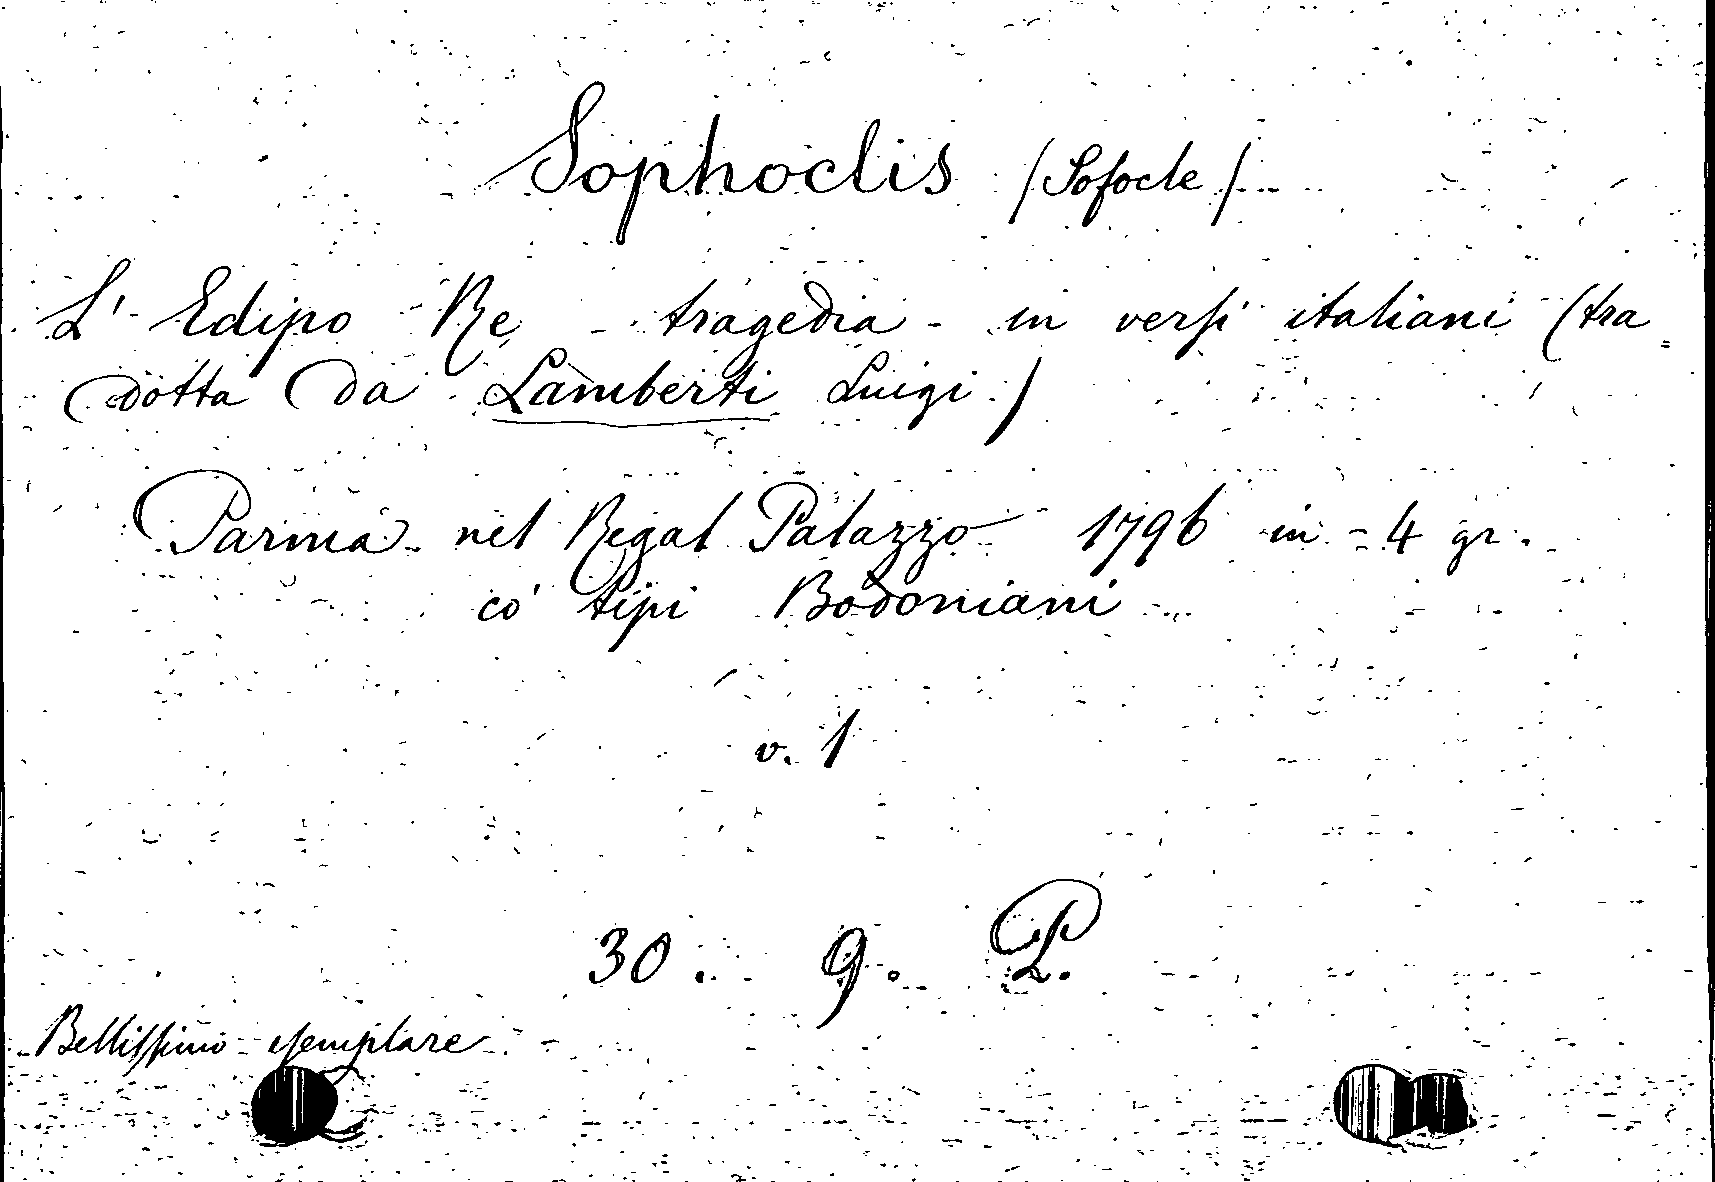 Sophoclis (Sofocle)
L' Edipo Re - tragedia - in versi italiani (tra=
dotta da Lamberti Luigi)
Parma nel Regal Palazzo 1796 in-4 gr.
co' tipi Bodoniani
v. 1
30. 9. P.
Bellissimo esemplare